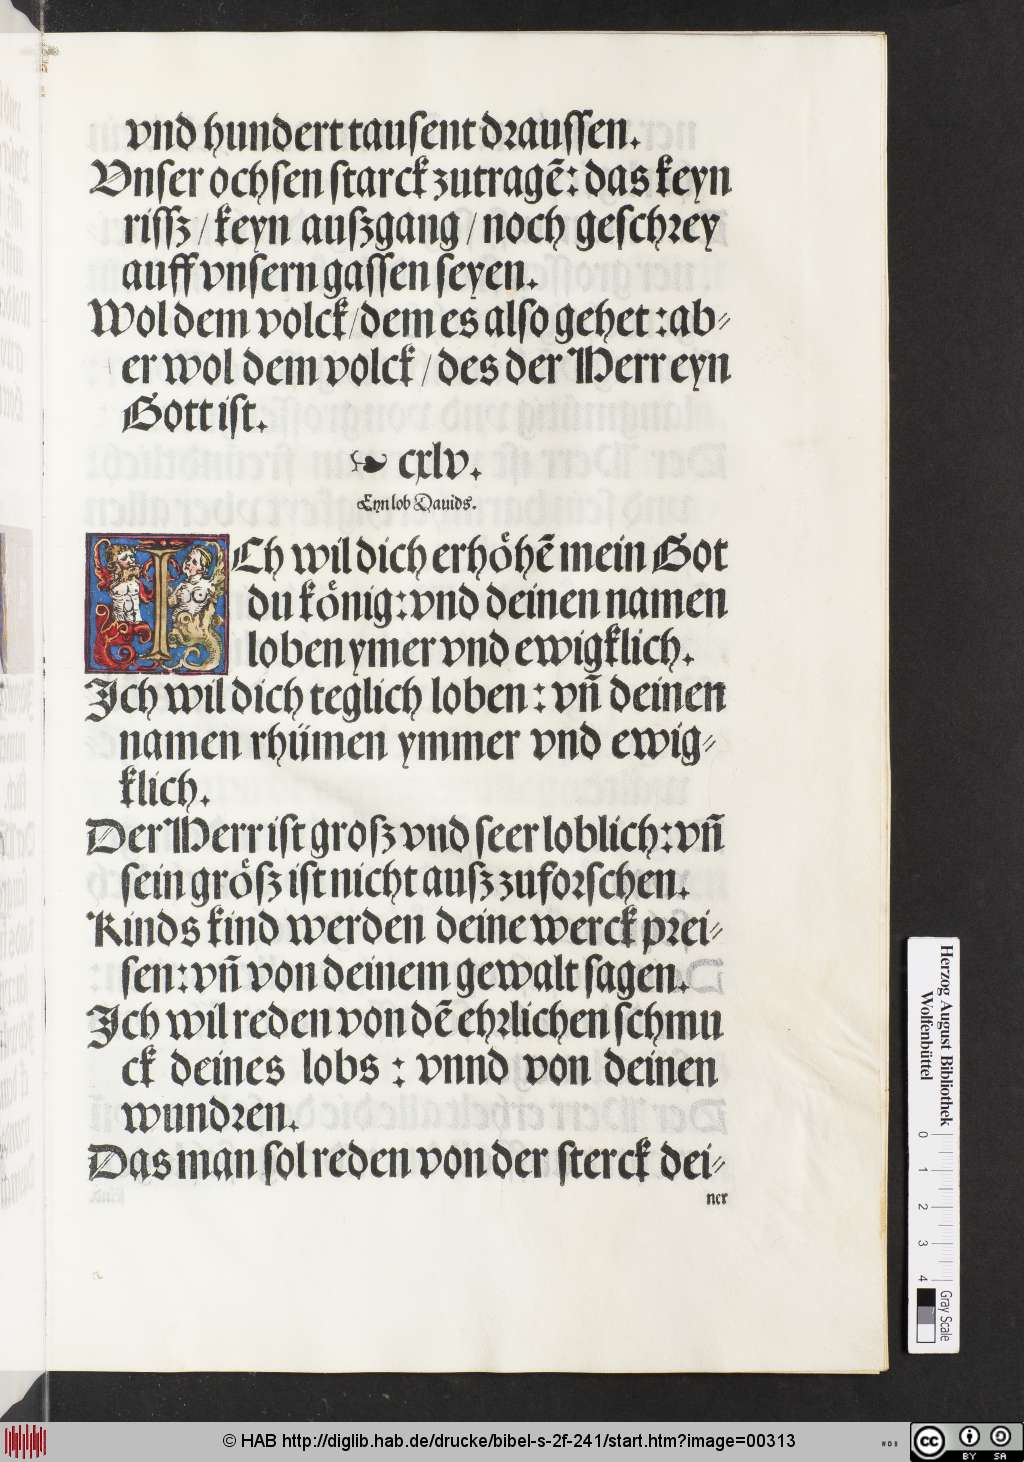 vnd hundert tausent draussen.
Vnser ochsen starck zutragẽ: das keyn
rissz / keyn auszgang / noch geschrey
auff vnsern gassen seyen.
Wol dem volck / dem es also gehet : ab⸗
er wol dem volck / des der Herr eyn
Gott ist.
☙ cxlv.
Eyn lob Dauids.
ICh wil dich erhoͤhẽ mein Got
du koͤnig: vnd deinen namen
loben ymer vnd ewigklich.
Ich wil dich teglich loben : vñ deinen
namen rhümen ymmer vnd ewig⸗
klich.
Der Herr ist grosz vnd seer loblich: vñ
sein groͤsz ist nicht ausz zuforschen.
Kinds kind werden deine werck prei⸗
sen: vñ von deinem gewalt sagen.
Ich wil reden von dẽ ehrlichen schmu
ck deines lobs : vnnd von deinen
wundren.
Das man sol reden von der sterck dei⸗
ner
Herzog August Bibliothek
Wolfenbüttel
0 1 2 3 4
Gray Scale
© HAB http://diglib.hab.de/drucke/bibel-s-2f-241/start.htm?image=00313
WDB
cc BY SA